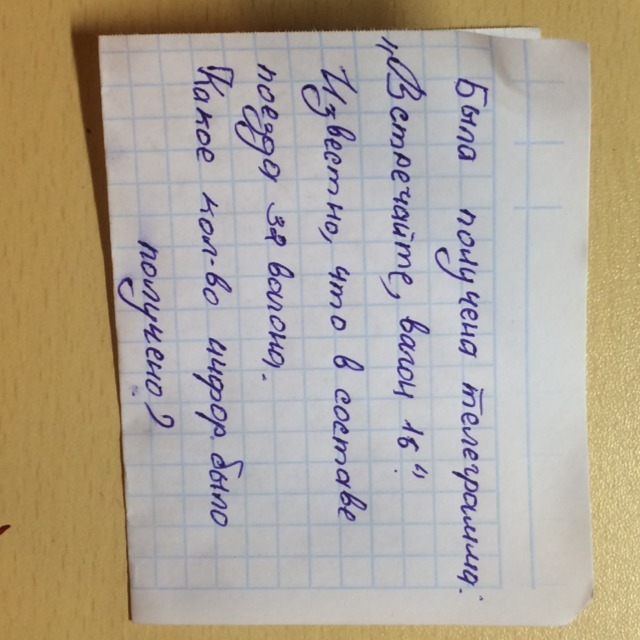 Была получена телеграмма:
"Встречайте, вагон 16".
Известно, что в составе
поезда 32 вагона.
Какое кол-во инфор. было
получено?